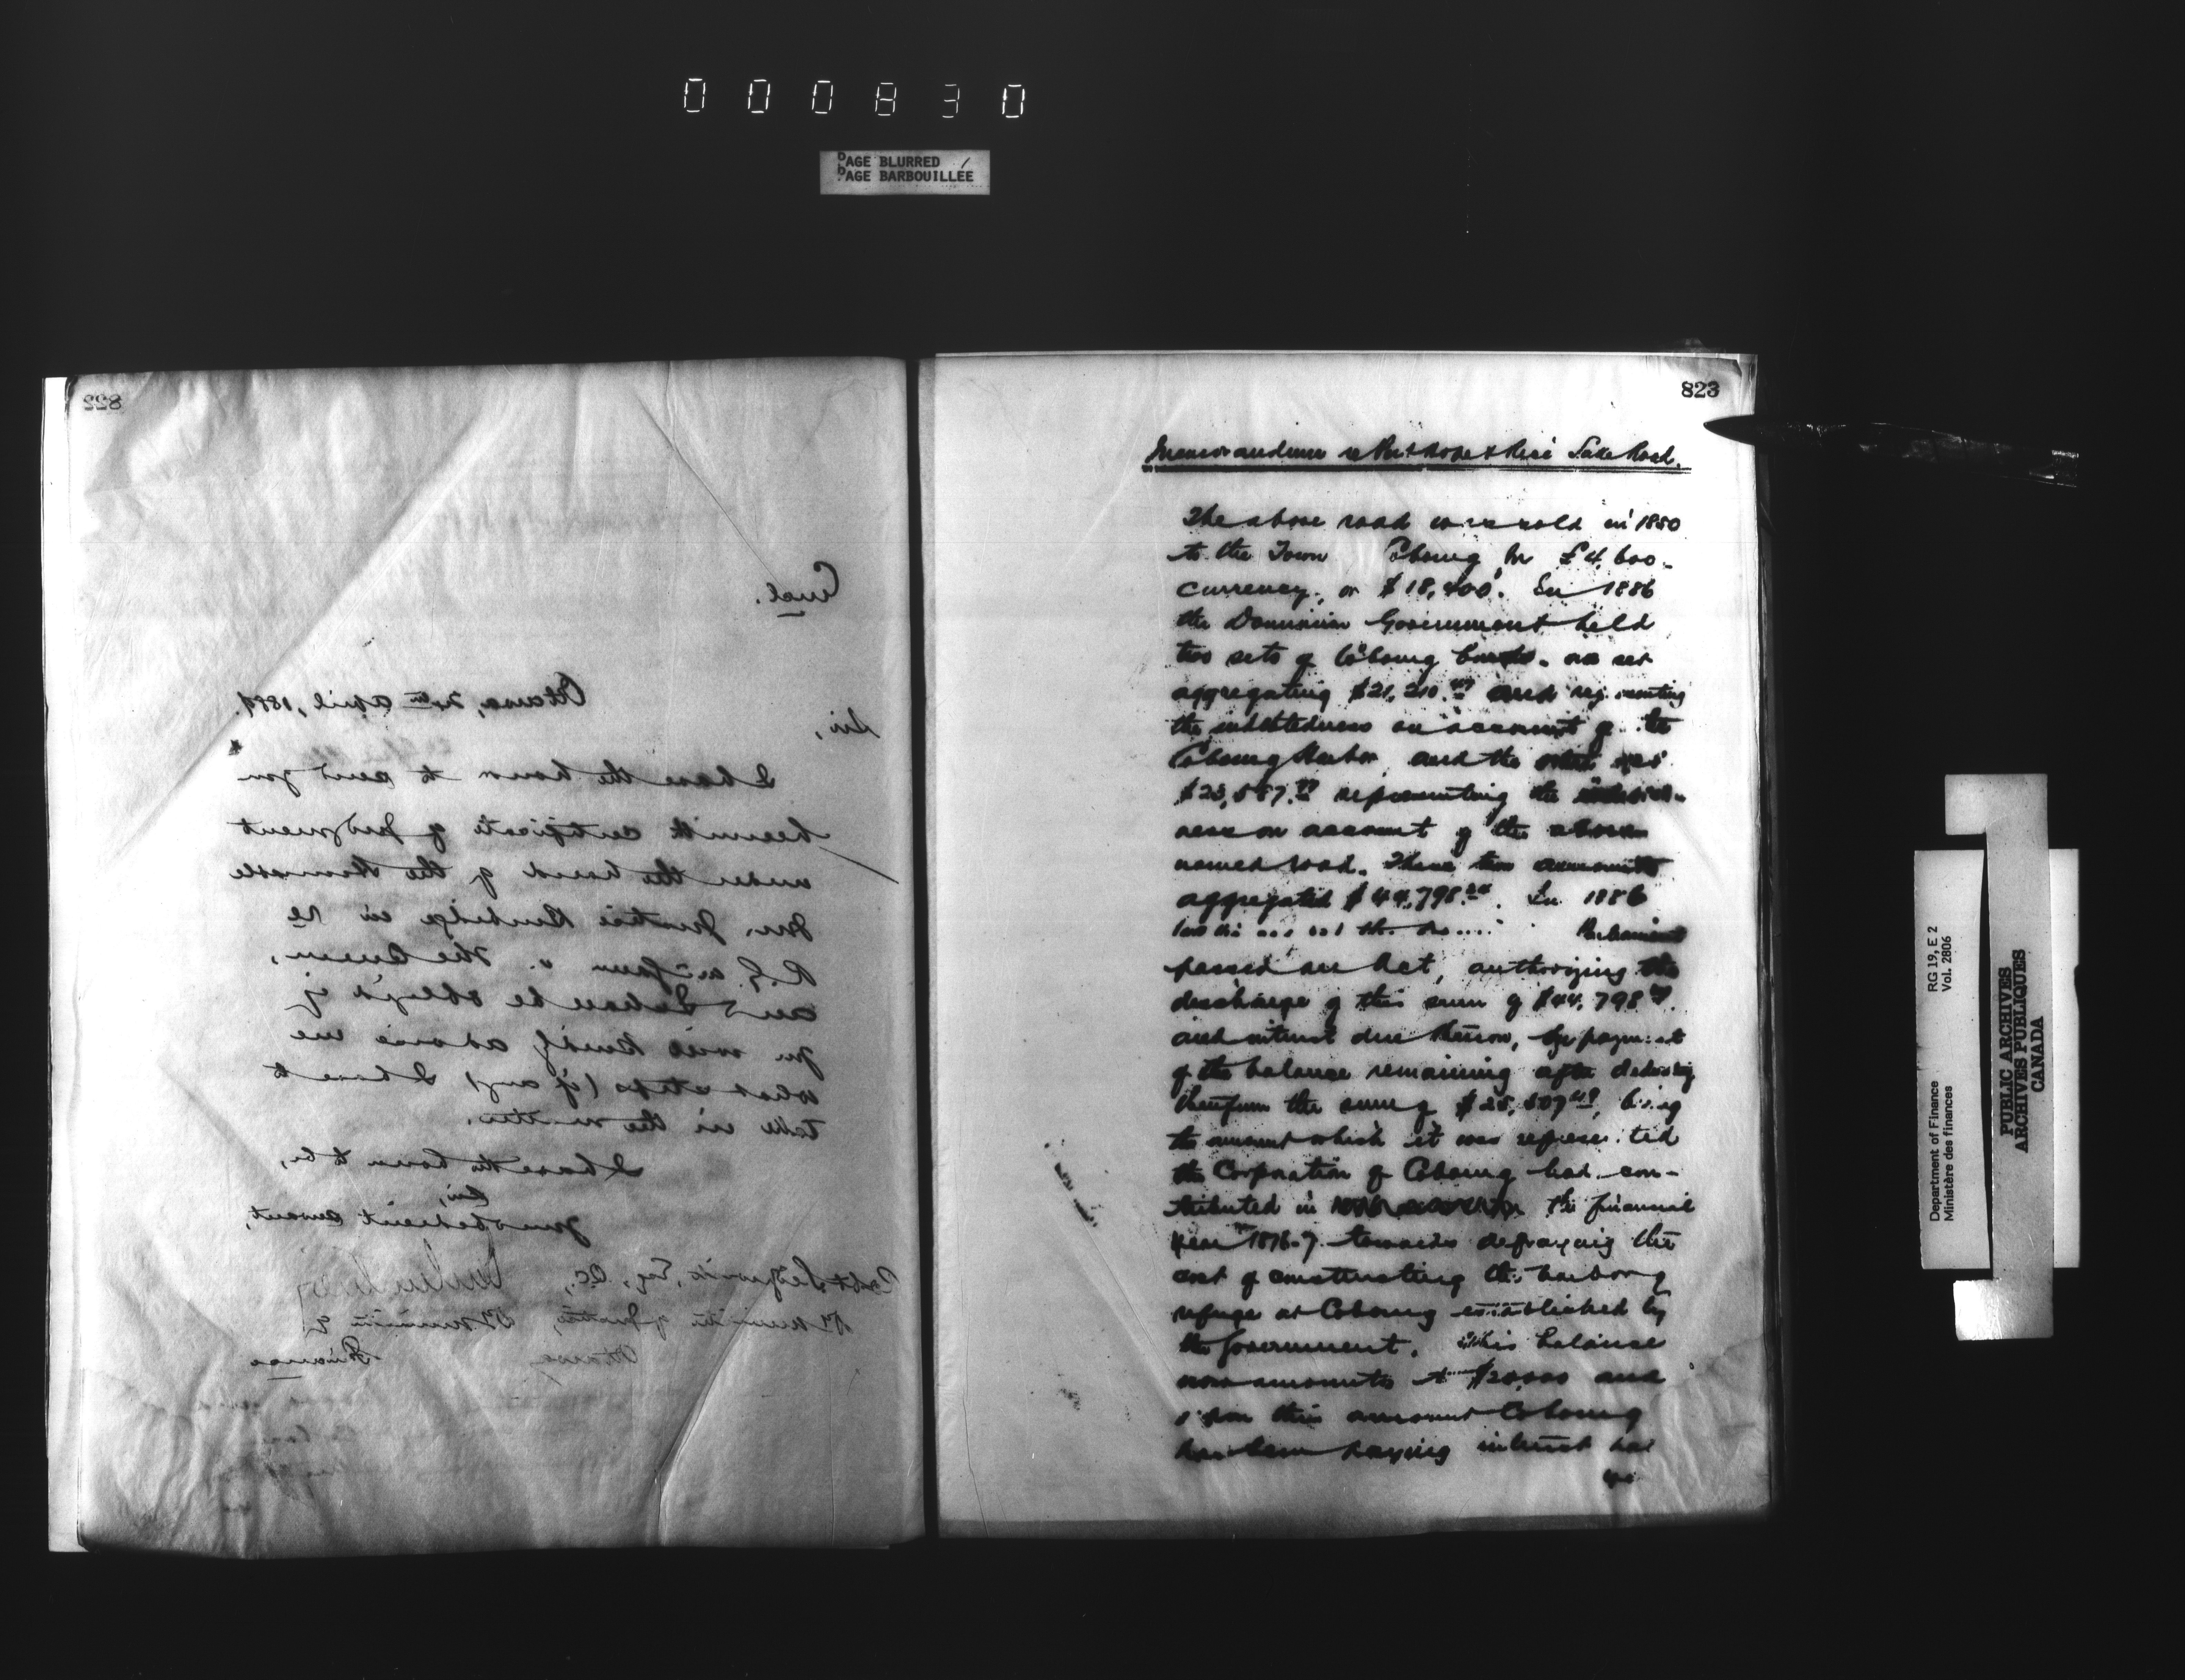 000830
PAGE BLURRED
PAGE BARBOUILLÉE
822
Encl.
Ottawa, 20th April, 1889.
Sir,
I have the honor to send you
herewith certificate of judgment
under the hand of the Honorable
Mr. Justice Burbidge in re
R.G. v. The Queen,
and I shall be obliged if
you will kindly advise me
what steps (if any) I have to
take in the matter.
I have the honor to be,
Sir,
Your obedient servant,
Robt Sedgewick, Esq., Q.C.,
Dy Minister of Justice, Dy Minister of
Ottawa Finance
823
Memorandum re Port Hope & Rice Lake Road.
The above road was sold in 1850
to the Town Cobourg for £4,600
currency, or $18,400. In 1886
the Dominion Government held
two sets of Cobourg bonds. one set
aggregating $21,210. and representing
the indebtedness on account of the
Cobourg Harbor, and the other
representing the
ness on account of the above
named road. These two amounts
aggregated $44,798. In 1886
Parliament
passed an Act, authorizing the
discharge of this sum of $44,798
and interest due thereon, by payment
of the balance remaining after deducting
therefrom the sum of being
the amount which it was represented
the Corporation of Cobourg had con-
tributed in the financial
year 1876-7 towards defraying the
cost of constructing the harbor of
refuge at Cobourg established by
the Government. This balance
now amounts to and
upon this amount Cobourg
has been paying interest
Department of Finance RG 19, E 2
Ministère des finances Vol. 2806
PUBLIC ARCHIVES
ARCHIVES PUBLIQUES
CANADA